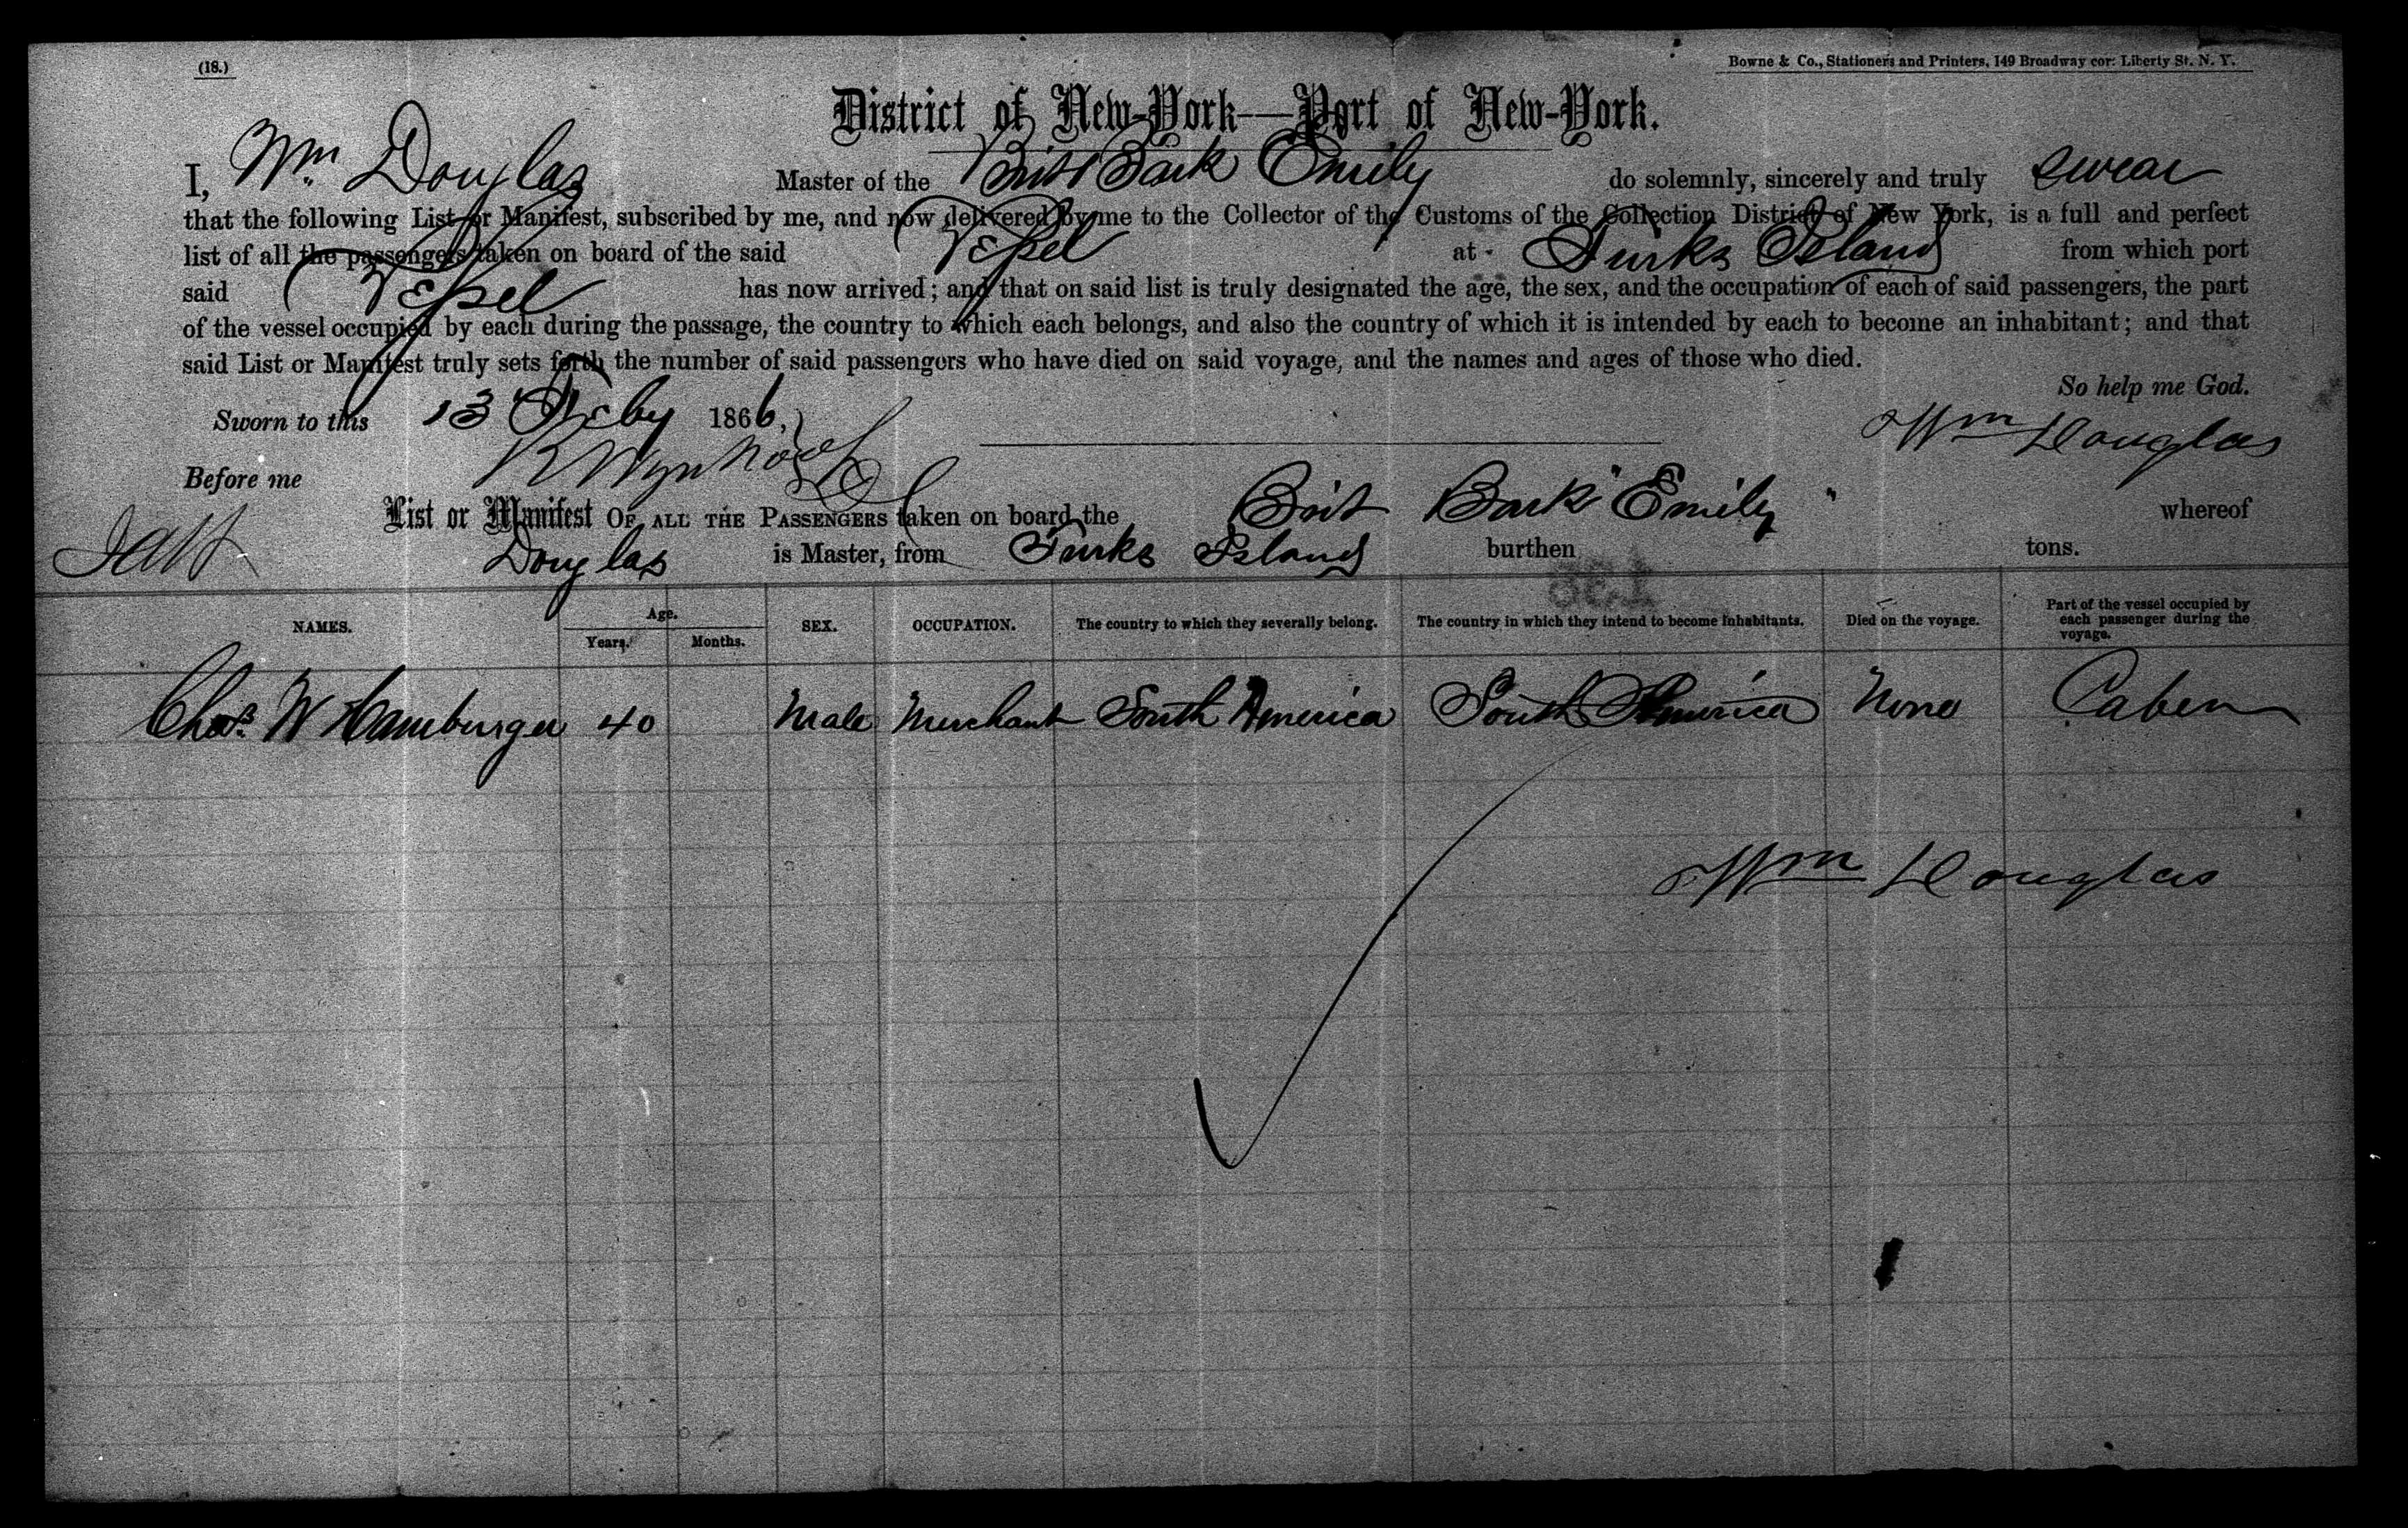 (18.)
Bowne & Co., Stationers and Printers, 149 Broadway cor. Liberty St. N. Y.
District of New-York—Port of New-York.
I, Wm. Douglas Master of the Brit Bark Emily do solemnly, sincerely and truly swear
that the following List or Manifest, subscribed by me, and now delivered by me to the Collector of the Customs of the Collection District of New York, is a full and perfect
list of all the passengers taken on board of the said Vessel at Turks Island from which port
said Vessel has now arrived; and that on said list is truly designated the age, the sex, and the occupation of each of said passengers, the part
of the vessel occupied by each during the passage, the country to which each belongs, and also the country of which it is intended by each to become an inhabitant; and that
said List or Manifest truly sets forth the number of said passengers who have died on said voyage, and the names and ages of those who died.
So help me God.
Sworn to this 13 Feby 1866,
Wm Douglas
Before me
List or Manifest OF ALL THE PASSENGERS taken on board the Brit Bark "Emily" whereof
Douglas is Master, from Turks Island burthen tons.
NAMES. Age. Years. Months. SEX. OCCUPATION. The country to which they severally belong. The country in which they intend to become inhabitants. Died on the voyage. Part of the vessel occupied by each passenger during the voyage.
Chas. W Hamburger 40 Male Merchant South America South America None Caben
Wm Douglas